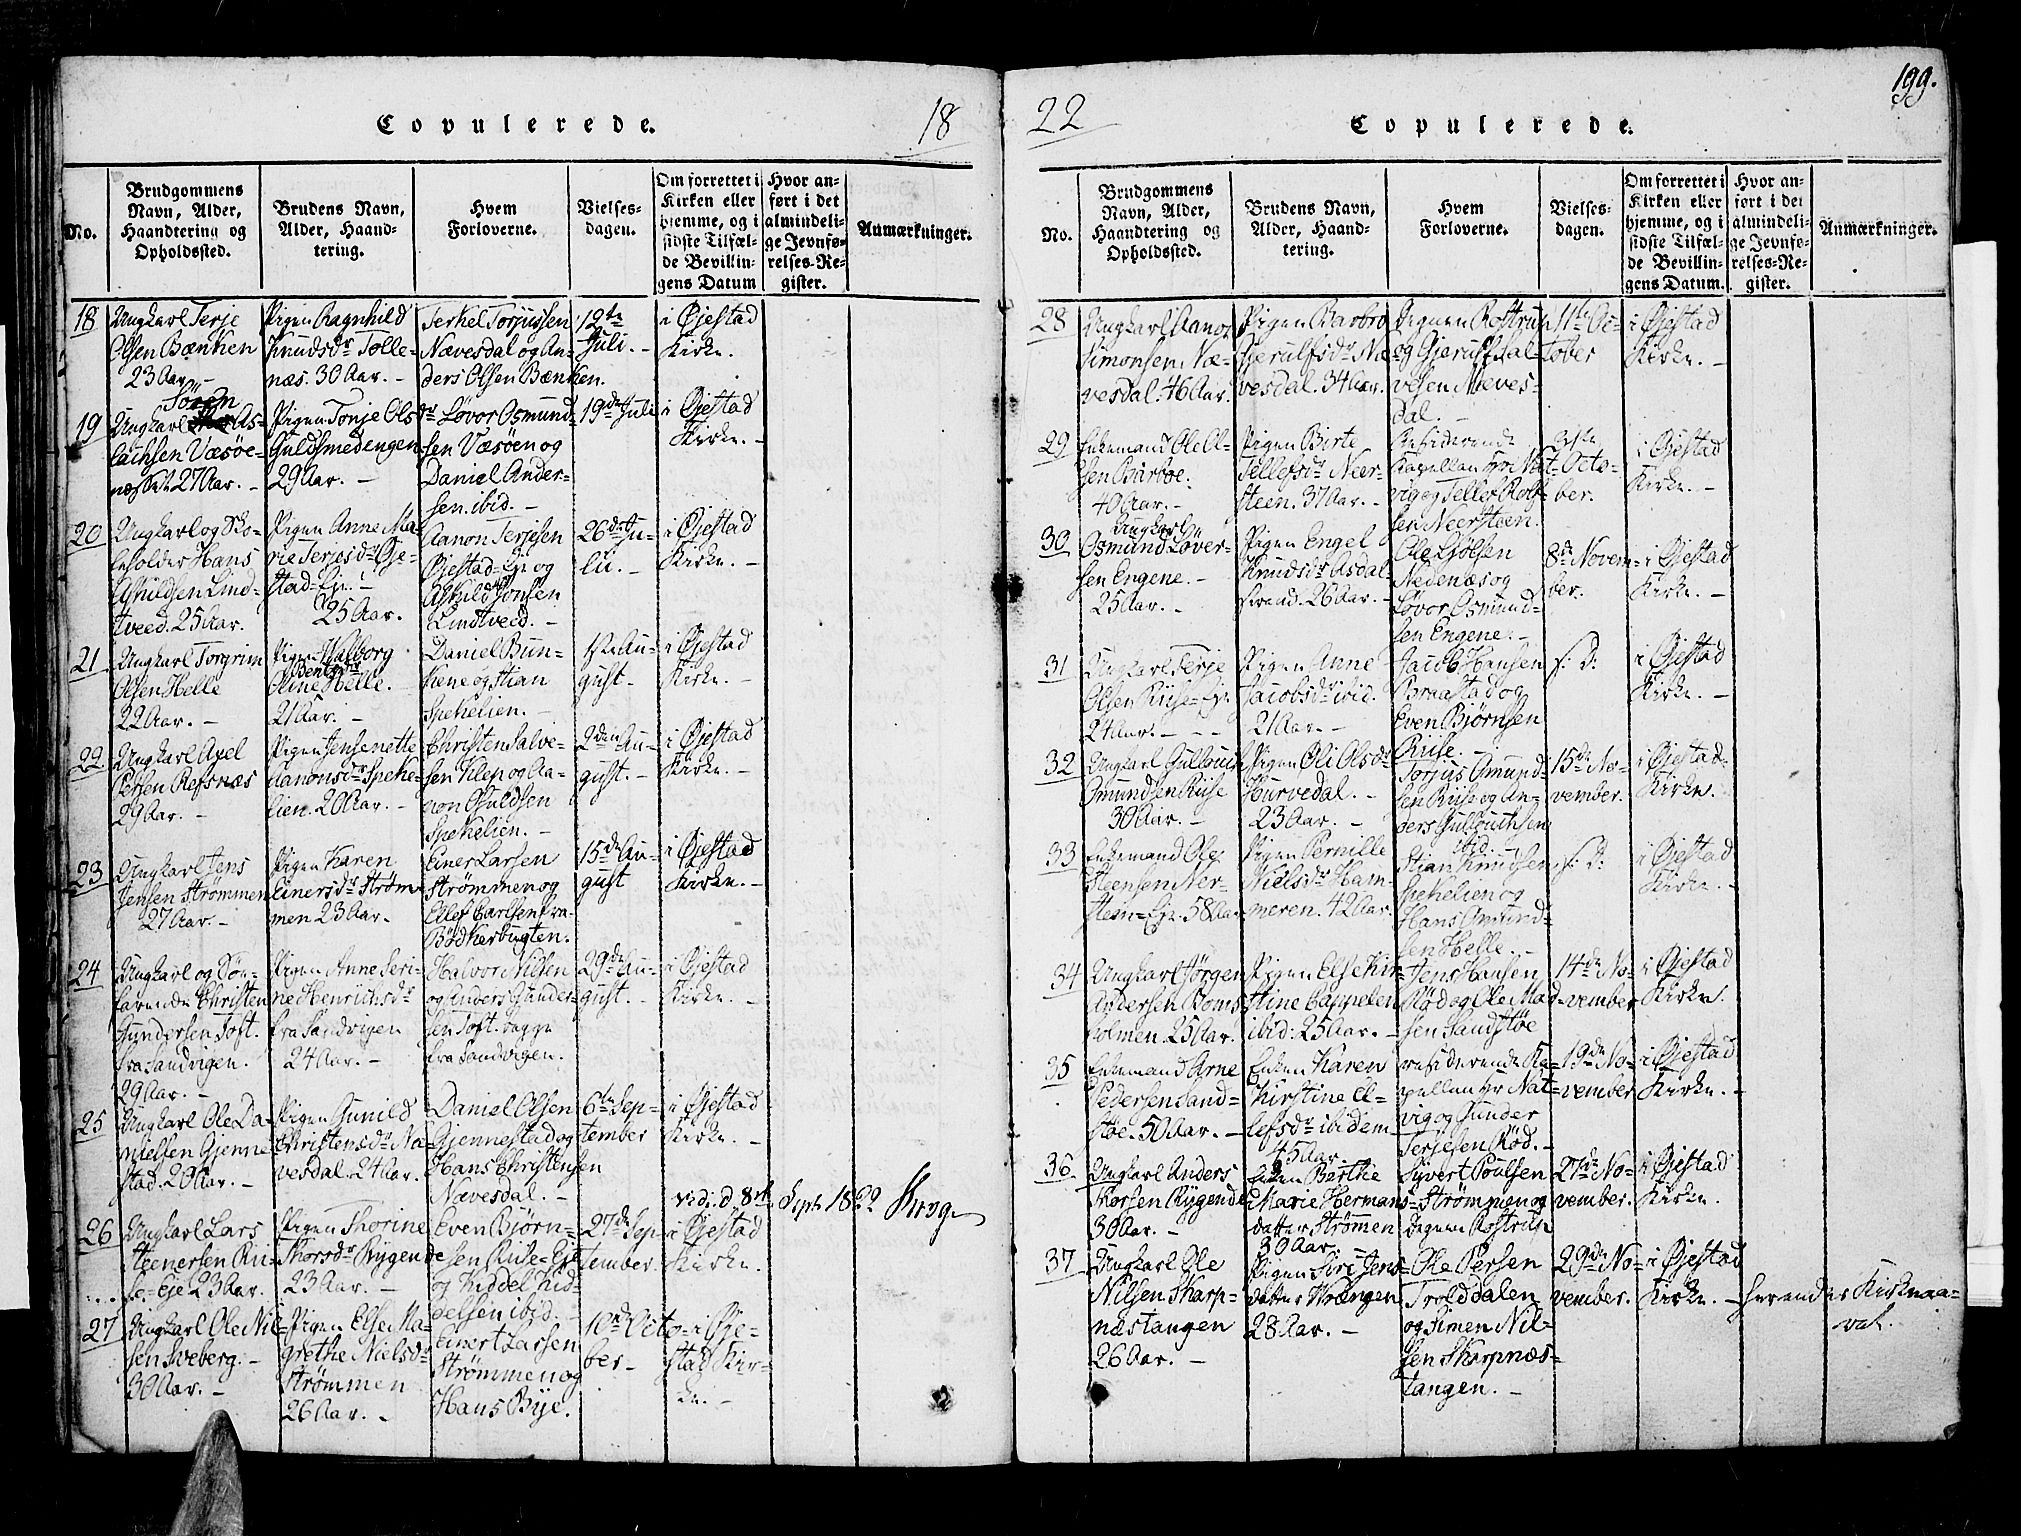 199.
Copulerede.
18
22
Copulerede.
No.
Brudgommens
Navn, Alder,
Haandtering og
Opholdssted.
Brudens Navn,
Alder, Haand-
tering.
Hvem
Forloverne.
Vielses-
dagen.
Om forrettet i
Kirken eller
hjemme, og i
sidste Tilfæl-
de Bevillin-
gens Datum
Hvor an-
ført i det
almindeli-
ge Jevnfø-
relses-Re-
gister.
Anmærkninger.
18
Ungkarl Terje
Olsen Bænken
23 Aar. -
Pigen Ragnhild
Knudsdr Tolle-
næs. 30 Aar. -
Terkel Torjussen
Nævesdal og An-
ders Olsen Bænken.
12te
Juli. -
i Øjestad
Kirke.
19
Sören
Ungkarl As-
lachsen Væsøe-
næsset 27 Aar. -
Pigen Tonje Olsdr
Guldsmedengen
29 Aar. -
Løvor Osmund-
sen Væsöen og
Daniel Ander-
sen. ibid. -
19de Juli
i Øjestad
Kirke. -
20
Ungkarl og Sko-
leholder Hans
Askildsen Lind-
tveed. 25 Aar.
Pigen Anne Ma-
rie Terjesdr Øje-
stad=Eje. -
25 Aar. -
Aanon Terjesen
Øjestad=Eje og
Askild Jonsen
Lindtveed. -
26de Ju-
li. -
i Øjestad
Kirke. -
21
Ungkarl Torgrim
Olsen Helle
22 Aar. -
Pigen Valborg
Bentsdr
Oline Helle. -
21 Aar. -
Daniel Bun-
kene og Stian
Spekelien. -
1ste Au-
gust. -
i Øjestad
Kirke. -
22
Ungkarl Axel
Persen Refsnæs
29 Aar. -
Pigen Jensenette
Aanonsdr Speke-
lien. 20 Aar. -
Christen Salve-
sen Klep og Aa-
non Gjuldsen
Spekelien. -
2den Au-
gust. -
i Øjestad
Kirke. -
23
Ungkarl Jens
Jensen Strömmen
27 Aar. -
Pigen Karen
Einersdr Ström-
men 23 Aar. -
Einer Larsen
Strömmen og
Ellef Carlsen fra
Bödkerbugten.
15de Au-
gust
i Øjestad
Kirke. -
24
Ungkarl og Søe-
farende Christen
Gundersen Toft.
fra Sandvigen.
29 Aar. -
Pigen Anne Seri-
ne Henrichsdr
fra Sandvigen
24 Aar. -
Halvor Nilsen
og Anders Gunder-
sen Toft. begge
fra Sandvigen.
29de Au-
gust. -
i Øjestad
Kirke. -
25
Ungkarl Ole Da-
nielsen Gjenne-
stad. 20 Aar. -
Pigen Gunild
Christensdr Næ-
vesdal. 24 Aar.
Daniel Olsen
Gjennestad og
Hans Christensen
Nævesdal. -
6te Sep-
tember
i Øjestad
Kirke. -
Vedi: d. 8de Sept. 1822 Krog
26
Ungkarl Lars
Steenersen Rii-
se=Eje 23 Aar.
Pigen Thorine
Thorsdr Rygende
23 Aar. -
Even Bjørn-
sen Riise=Eje
og Kiddel Kid-
delsen ibid. -
27de Sep-
tember.
i Øjestad
Kirke.
27
Ungkarl Ole Nil-
sen Sveberg. -
30 Aar. -
Pigen Else Ma-
grethe Nielsdr
Strømmen
26 Aar. -
Einert Larsen
Strømmen og
Hans Bye.
10de Octo-
ber -
i Øje-
stad Kir-
ke. -
No.
Brudgommens
Navn, Alder,
Haandtering og
Opholdssted.
Brudens Navn,
Alder, Haand-
tering.
Hvem
Forloverne.
Vielses-
dagen.
Om forrettet i
Kirken eller
hjemme, og i
sidste Tilfæl-
de Bevillin-
gens Datum.
Hvor an-
ført i det
almindeli-
ge Jevnfø-
relses-Re-
gister.
Anmærkninger.
28
Ungkarl Aanon
Simonsen Næ-
vesdal. 46 Aar.
Pigen Barbro
Gjerulfsdr Næ-
vesdal. 34 Aar.
Degnen Rostrup
og Gjerulf Sal-
vesen Næves-
dal. -
11te Oc-
tober
i Øjestad
Kirke. -
29
Enkemand Ole Ol-
sen Barboe.
40 Aar. -
Pigen Birte
Tellefsdr Neer-
steen. 37 Aar. -
Residerende
Kapellan Hr Nat-
vig og Tellef Rolf-
sen Neersteen.
Octo-
ber.
i Øjestad
Kirke. -
30
Ungkarl
Osmund Løver-
sen Engene. -
25 Aar. -
Pigen Engel
Knudsdr Asdal-
strand. 26 Aar. -
Ole Gjölsen
Nedenæs og
Løvor Osmund-
sen Engene. -
8de Novem-
ber.
i Øjestad
Kirke. -
31
Ungkarl Terje
Olsen Riise=Eje.
24 Aar. - - -
Pigen Anne
Jacobsdr ibid.
21 Aar. -
Jacob Hansen
Braastad og
Even Bjørnsen
Riise. -
s: D:
i Øjestad
Kirke. -
32
Ungkarl Gullouch
Omundsen Riise
30 Aar. -
Pigen Øli Olsdr
Hurvedal. -
23 Aar. -
Torjus Omund-
sen Riise og An-
ders Gullouchsen
ibid. -
15de No-
vember.
i Øjestad
Kirke.
33
Enkemand Ole
Steensen Neer-
steen=Eje. 58 Aar
Pigen Pernille
Nielsdr Ham-
meren. 42 Aar.
Stian Knudsen
Spekelien og
Hans Omund-
sen Helle. -
s: D:
i Øjestad
Kirke. -
34
Ungkarl Jörgen
Andersen Boms-
holmen. 25 Aar.
Pigen Else Kir-
stine Cappelen
ibid: 25 Aar. -
Jens Hansen
Rød og Ole Mad-
sen Sandstøe
14de No-
vember
i Øjestad
Kirke.
35
Enkemand Arne
Pedersen Sand-
støe. 50 Aar. -
Enken Karen
Kirstine El-
lefsdr ibidem
45 Aar. -
residerende Ka-
pellan Hr Nat-
vig og Gunder
Terjesen Rød. -
19de No-
vember
i Øjestad
Kirke. -
36
Ungkarl Anders
Thorsen Rygende
30 Aar. -
Pigen Barthe
Marie Hermans-
datter Strømmen
30 Aar. -
Syvert Poulsen
Strømmen og
Degnen Rostrup
27de No-
vember.
i Øjestad
Kirke.
37
Ungkarl Ole
Nilsen Skarp-
næstangen
26 Aar. -
Pigen Siri Jens-
datter Vrængen
28 Aar. -
Ole Persen
Trolddalen
og Simen Nil-
sen Skarpnæs-
tangen. -
29de No-
vember.
i Øjestad
Kirke. -